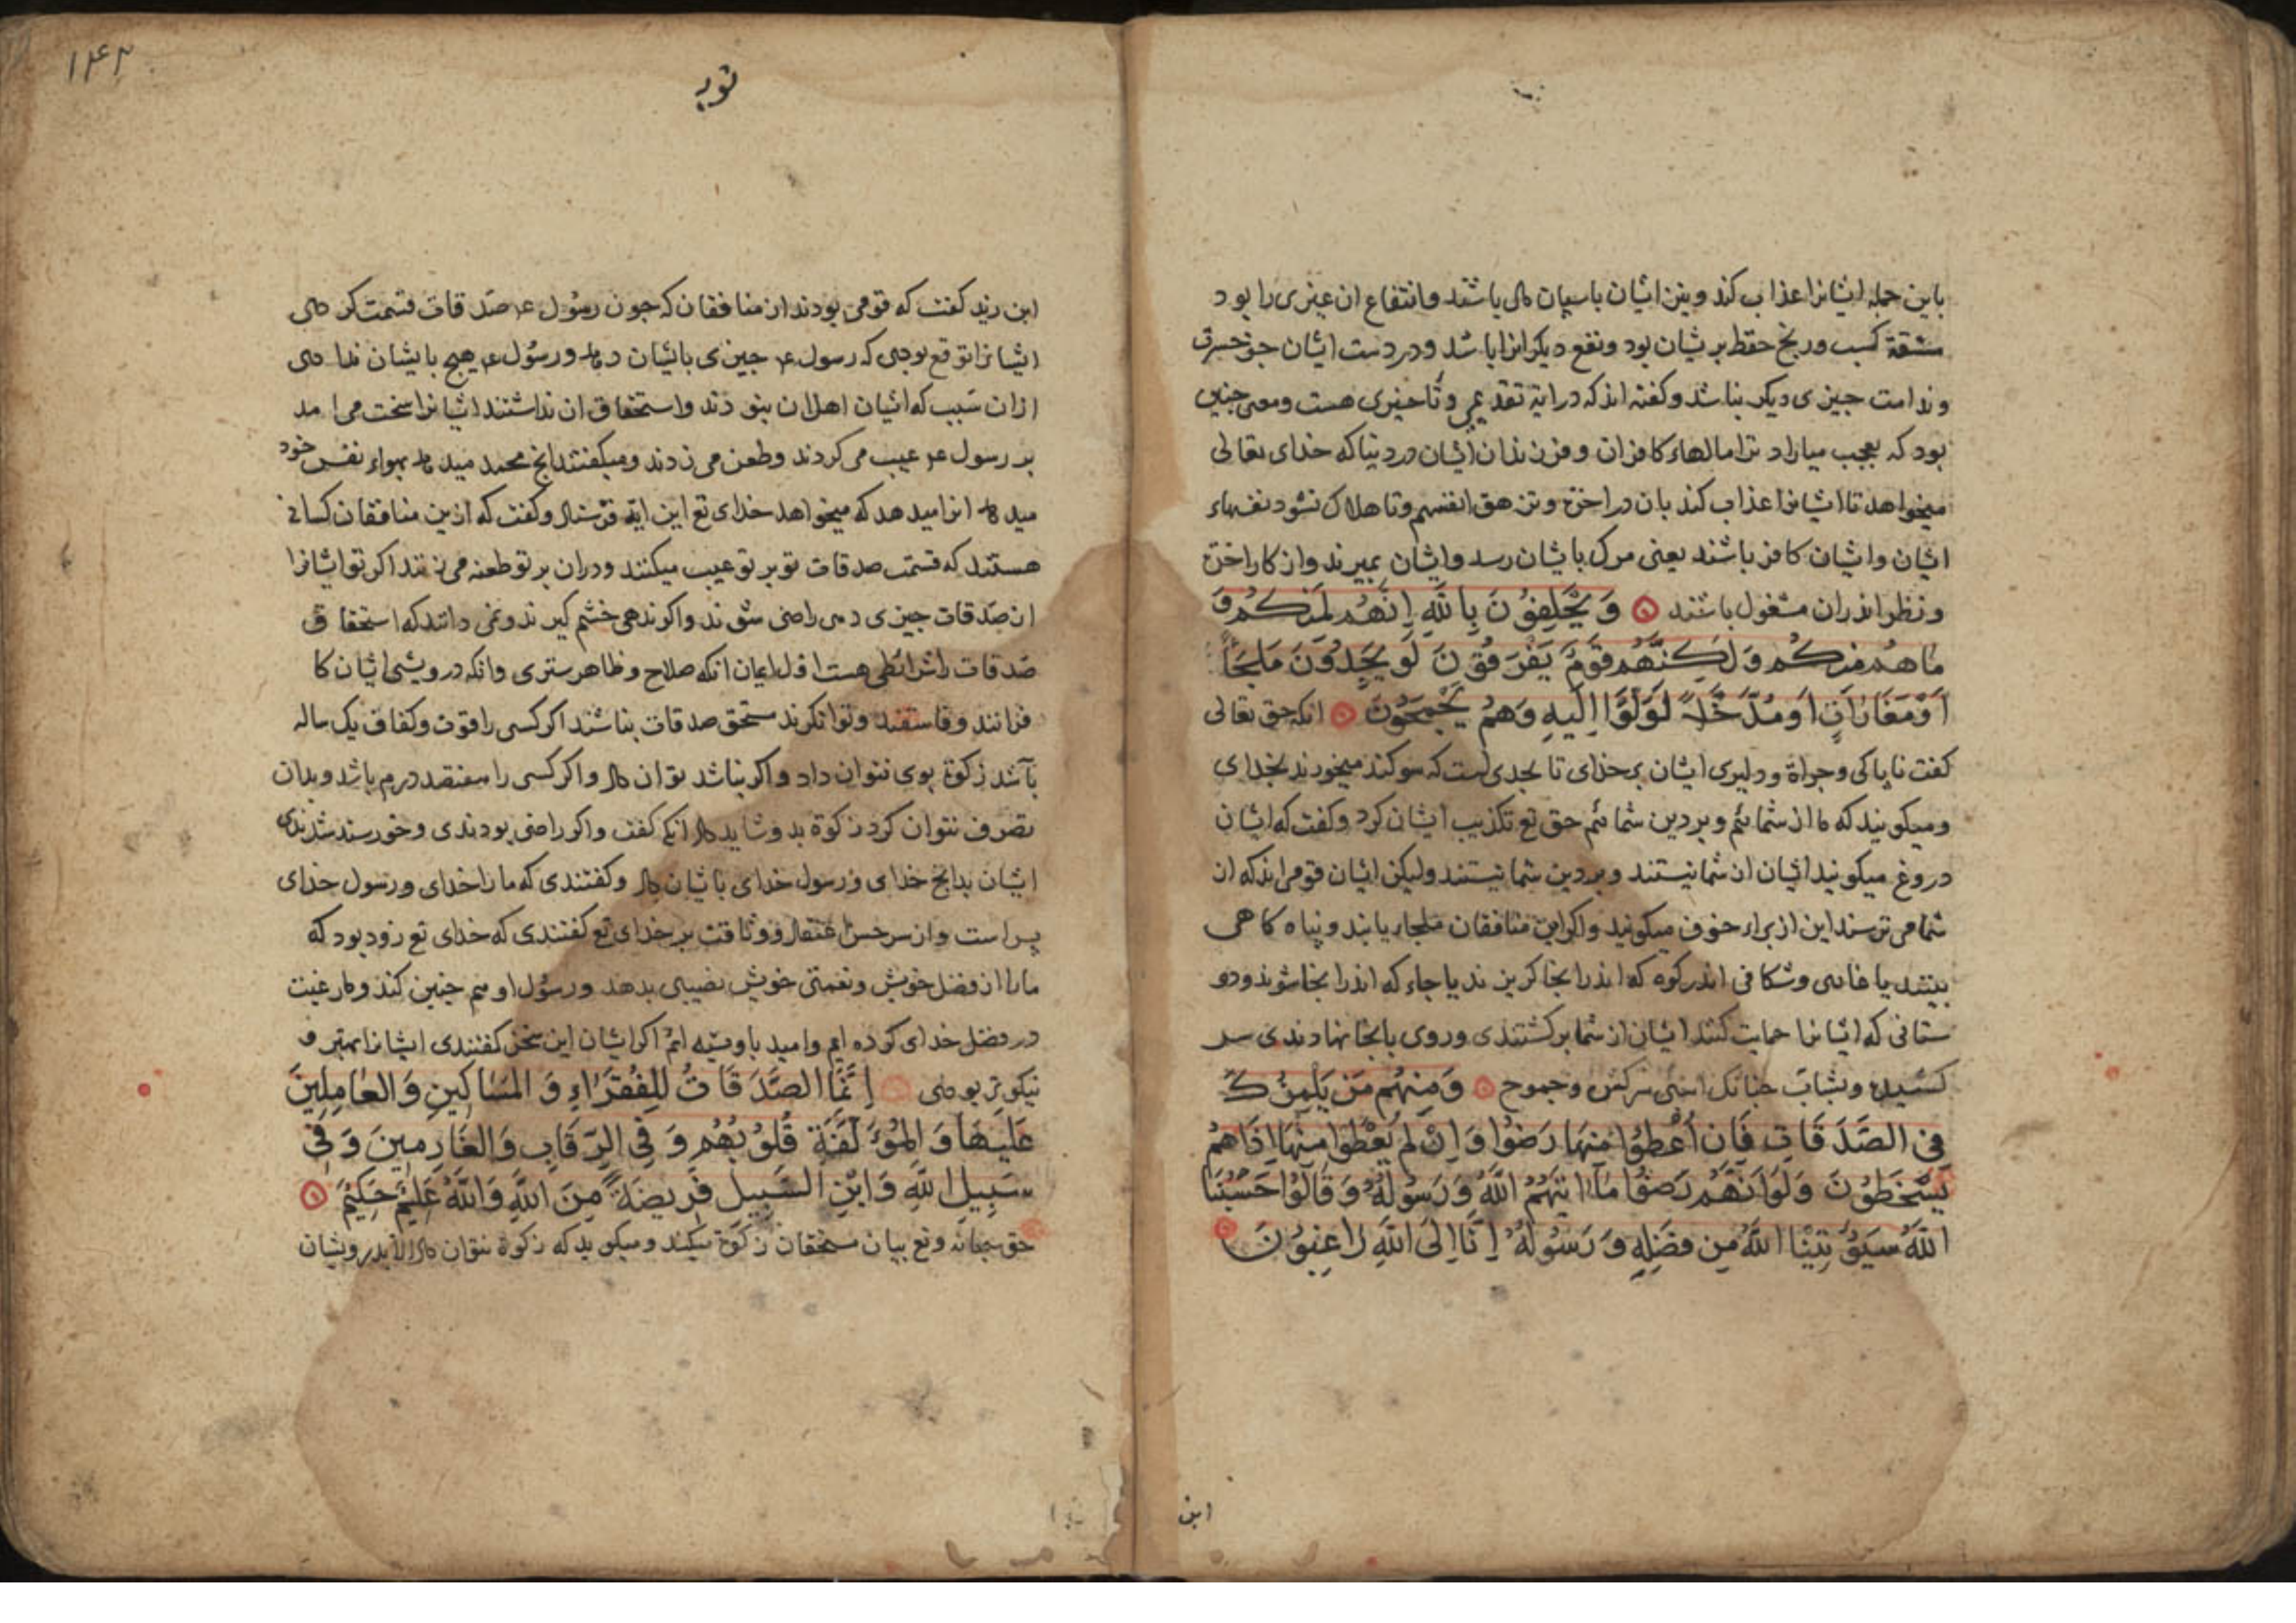 باین جمله ایشانرا عذاب کند و بنن ایشان باسپان مال باشند و انتفاع ان غیری را بود
مشقة کسب و رنج حفظ بر شان بود و نفع دیکرانرا باشد و در دست ایشان جز حسرت
و ندامت جیزی دیکر نباشد و کفته اند که در ایة تقدیمی و تاخیری هست و معنی جنین
بود که بعجب میاراد ترا مالهاء کافران و فرزندان ایشان در دنیا که خدای تعالی
میخواهد تا ایشانرا عذاب کند بان در اخرة و تزهق انفسهم و تا هلاک شود نفسهاء
ایشان و ایشان کافر باشند یعنی مرک بایشان رسد و ایشان بمیرند و از کار اخرة
و نظر اندران مشغول باشند وَ يَحْلِفُونَ بِاللّهِ اِنَّهُمْ لَمِنْكُمْ وَ
مَا هُمْ مِنْكُمْ وَ لٰكِنَّهُمْ قَوْمٌ يَفْرَقُوْنَ لَوْ يَجِدُوْنَ مَلْجَأً
اَوْ مَغَارَاتٍ اَوْ مُدَّخَلاً لَوَلَّوْا اِلَيْهِ وَ هُمْ يَجْمَحُوْنَ انکه حق تعالی
کفت ناپاکی و جراة و دلیری ایشان بر خدای تا بحدی است که سوکند میخورند بخدای
و میکویند که ما از شمائیم و بر دین شمائیم حق تع تکذیب ایشان کرد و کفت که ایشان
دروغ میکویند ایشان از شما نیستند و بر دین شما نیستند ولیکن ایشان قومی اند که از
شما می ترسند این از براء خوف میکویند و اکر این منافقان ملجاء یابند و پناه کاهی
بینند یا غاری و شکافی اندر کوه که اندرانجا کریزند یا جاء که اندرانجا شوند و دو
ستانی که ایشانرا حمایت کنند ایشان از شما برکشتندی و روی بانجا نهادندی سر
کشیده و بشتاب جنانک اسبی سرکش و جموح وَ مِنْهُمْ مَنْ يَلْمِزُكَ
فِی الصَّدَقَاتِ فَاِنْ اُعْطُوْا مِنْهَا رَضُوْا وَ اِنْ لَمْ يُعْطَوْا مِنْهَا اِذَا هُمْ
يَسْخَطُوْنَ وَ لَوْ اَنَّهُمْ رَضُوْا مَا اٰتٰیهُمُ اللّهُ وَ رَسُوْلُهُ وَ قَالُوْا حَسْبُنَا
اللّهُ سَيُؤْتِيْنَا اللّهُ مِنْ فَضْلِهِ وَ رَسُوْلُهُ اِنَّا اِلَی اللّهِ رَاغِبُوْنَ
ابن
۱۴۳
توبه
ابن زید کفت که قومی بودند از منافقان که جون رسول ع صدقات قسمت کردی
ایشانرا توقع بودی که رسول ع جیزی بایشان دهد و رسول ع هیج بایشان ندادی
ازان سبب که ایشان اهل ان نبودند و استحقاق ان نداشتند ایشانرا سخت می امد
بر رسول ع عیب می کردند و طعن می زدند و میکفتند انج محمد میدهد بهواء نفس خود
میدهد انرا میدهد که میخواهد خدای تع این ایة فرستاد و کفت که ازین منافقان کسانی
هستند که قسمت صدقات تو بر تو عیب میکنند و دران بر تو طعنه می زنند اکر تو ایشانرا
ان صدقات جیزی دهی راضی شوند و اکر ندهی خشم کیرند و نمی دانند که استحقاق
صدقات را شرائطی هست اول ایمان انکه صلاح و ظاهر ستری و انکه درویشی ایشان کا
فرانند و فاسقند و توانکرند مستحق صدقات نباشند اکر کسی را قوت و کفاف یک ساله
باشد زکوة بوی نتوان داد و اکر نباشد توان داد و اکر کسی را هفتصد درم باشد و بدان
تصرف نتوان کرد زکوة بدو شاید داد انکه کفت و اکر راضی بودندی و خورسند شدندی
ایشان بدانج خدای و رسول خدای بایشان داد و کفتندی که ما را خدای و رسول خدای
بس است و از سر حسن اعتقاد و وثاقت بر خدای تع کفتندی که خدای تع زود بود که
ما را از فضل خویش و نعمت خویش نصیبی بدهد و رسول او هم جنین کند و ما رغبت
در فضل خدای کرده ایم و امید باو بسته ایم اکر ایشان این سخن کفتندی ایشانرا بهتر و
نیکوتر بودی اِنَّمَا الصَّدَقَاتُ لِلْفُقَرَاءِ وَ الْمَسَاكِينِ وَ الْعَامِلِينَ
عَلَيْهَا وَ الْمُؤَلَّفَةِ قُلُوْبُهُمْ وَ فِي الرِّقَابِ وَ الْغَارِمِينَ وَ فِي
سَبِيلِ اللّهِ وَ ابْنِ السَّبِيلِ فَرِيضَةً مِنَ اللّهِ وَ اللّهُ عَلِيمٌ حَكِيمٌ
حق سبحانه و تع بیان مستحقان زکوة میکند و میکوید که زکوة نتوان داد الا بدرویشان